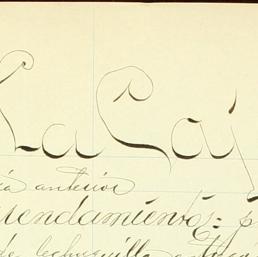 La Caj
ia anterior
rrendamiento: p
de lechuguilla